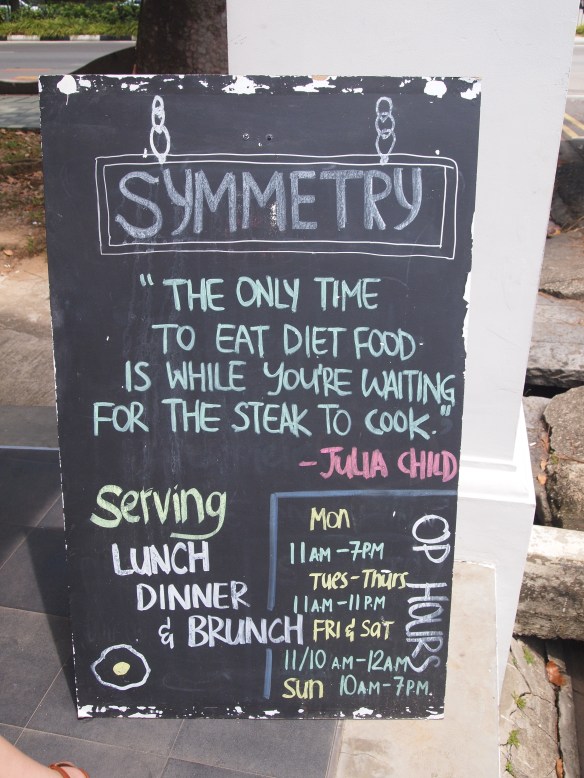 SYMMETRY
"THE ONLY TIME
TO EAT DIET FOOD
IS WHILE YOU'RE WAITING
FOR THE STEAK TO COOK."
-JULIA CHILD
Serving
LUNCH
DINNER
& BRUNCH
OP HOURS
MON
11AM-7PM
TUES-THURS
11AM-11PM
FRI & SAT
11/10 AM-12AM
SUN 10AM-7PM.